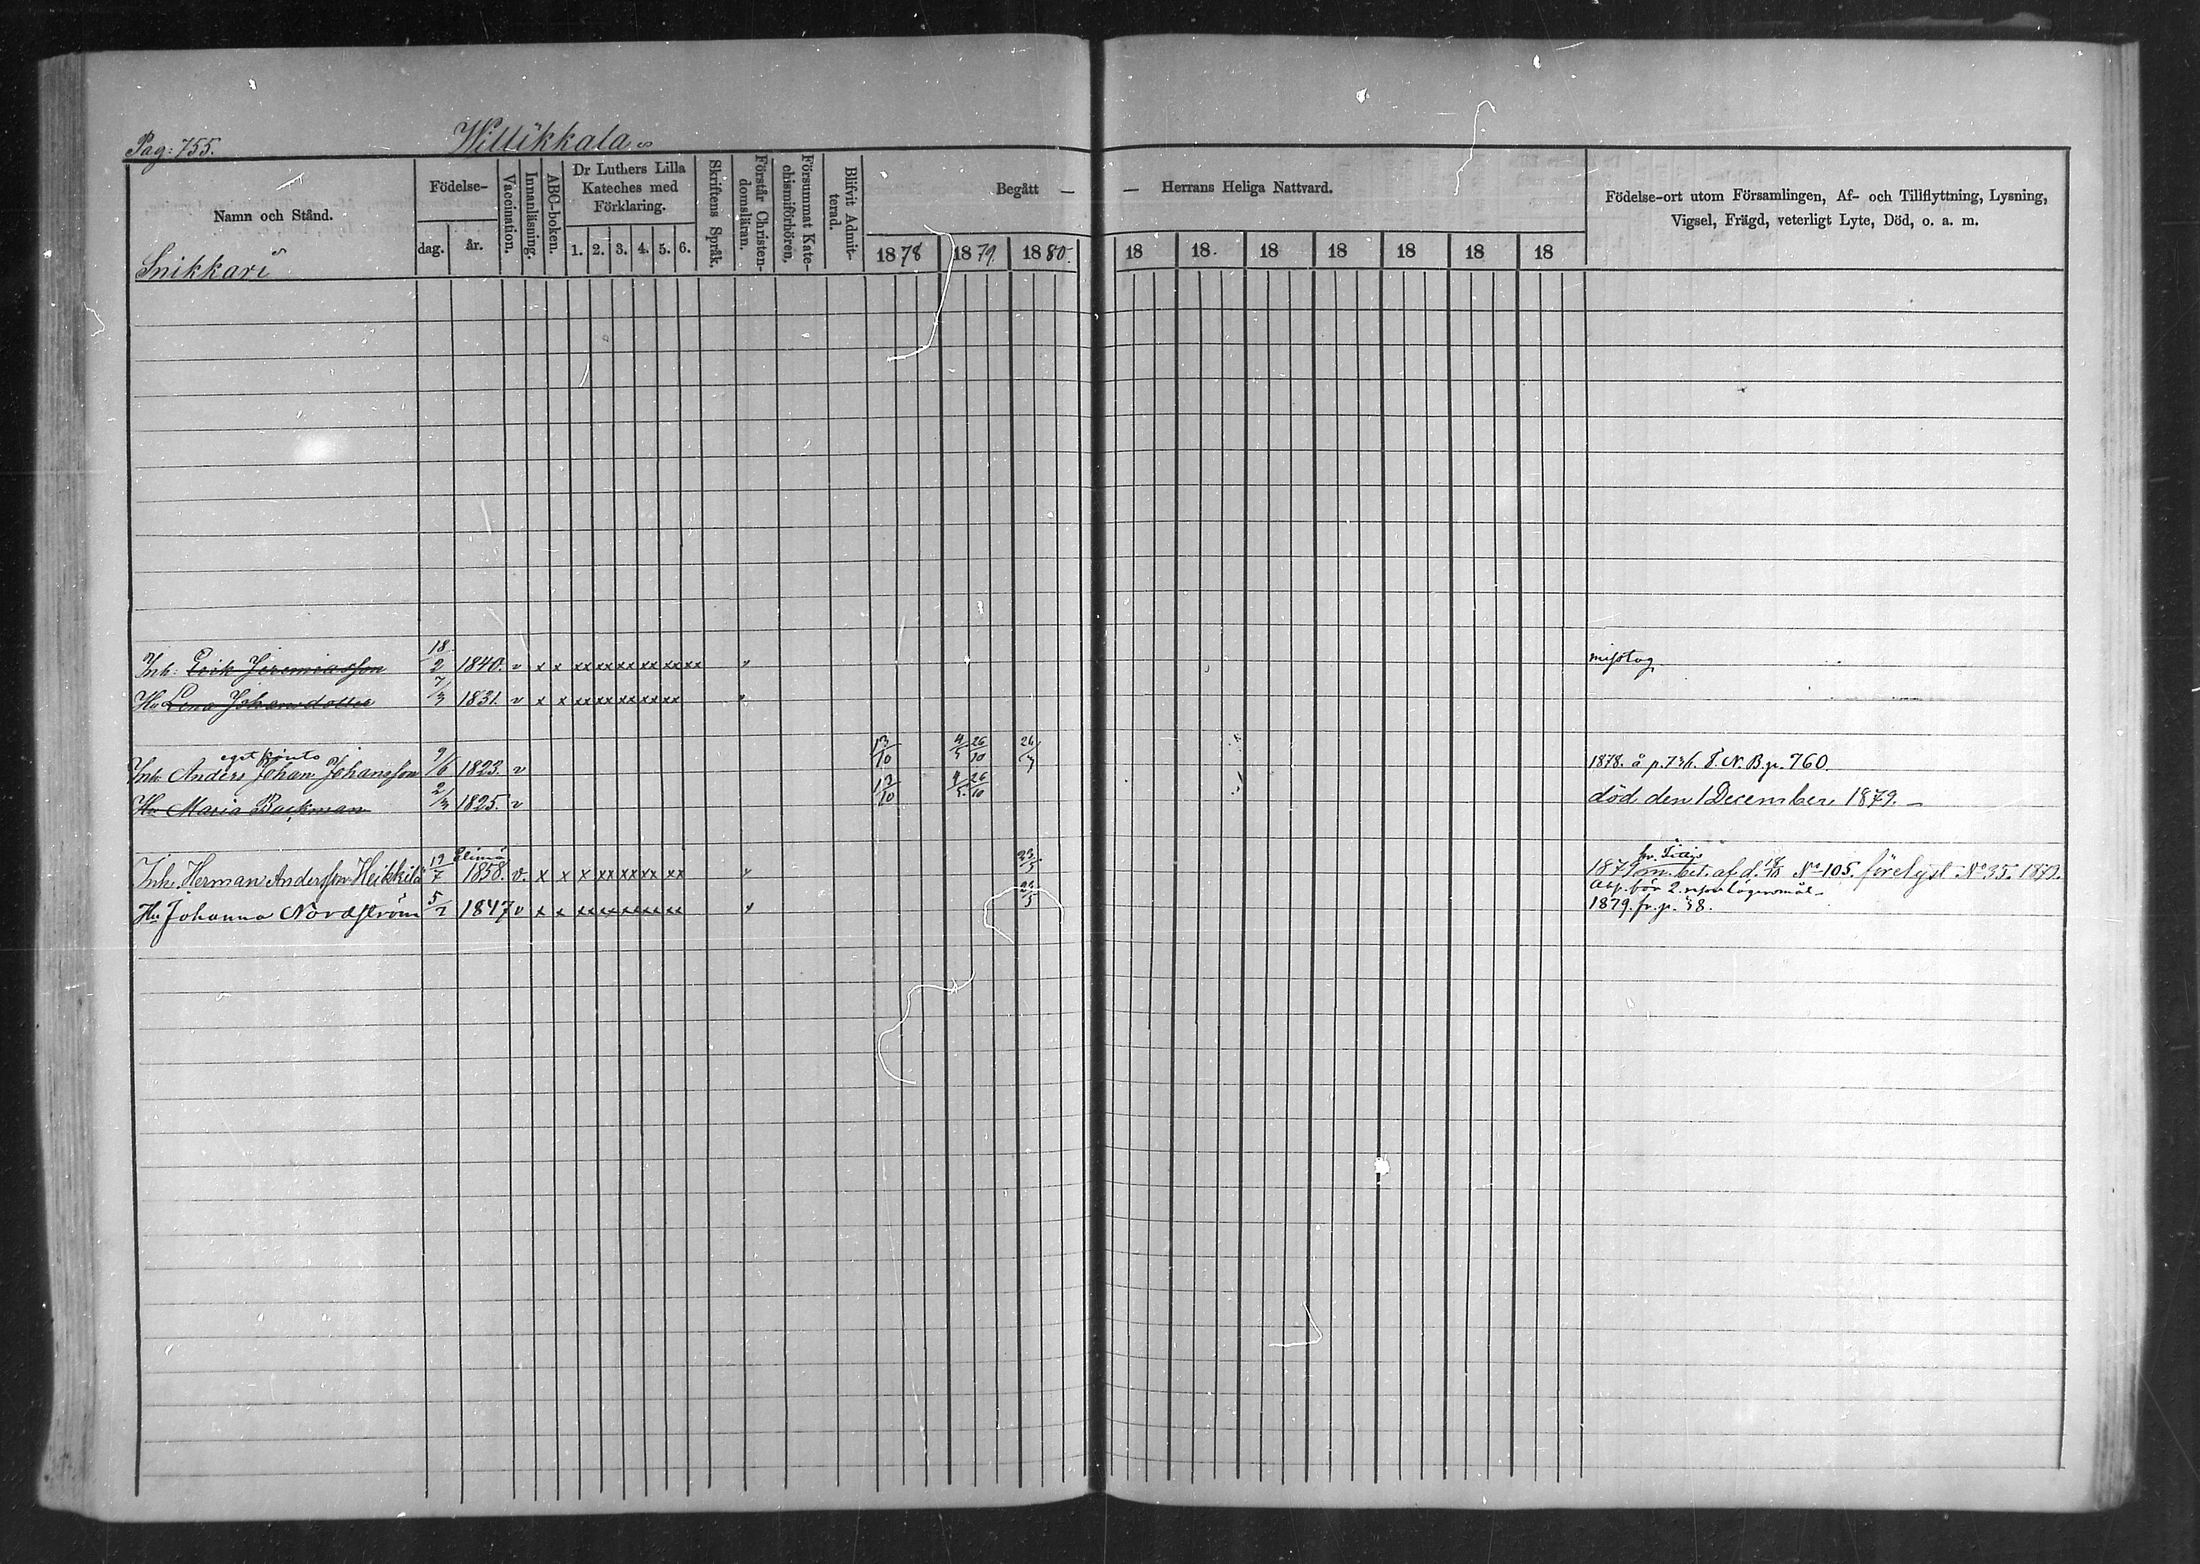 Pag: 755. Willikkala
Namn och Stånd. Födelse- dag. år. Vaccination. Innanläsning. ABC-boken. Dr Luthers Lilla Kateches med Förklaring. 1. 2. 3. 4. 5. 6. Skriftens Språk. Förstår Christendomsläran. Försummat Katechismiförhören. Blifvit Admitterad. Begått — — Herrans Heliga Nattvard. Födelse-ort utom Församlingen, Af- och Tillflyttning, Lysning,
Vigsel, Frägd, veterligt Lyte, Död, o. a. m.
Snikkari 1878 1879 1880. 18 18 18 18 18 18 18
Inh. Erik Jeremiasson 18/2 1840. v x x xx xx xx xx xx xx v misstag
Hu Lena Johansdotter 7/3 1831. v x x xx xx xx xx xx v
eget konto
Inh. Anders Johan Johansson 9/6 1823. v 13/10 4/5 26/10 1878. å p. 736. T. N. B. p. 760.
Hu Maria Backman 2/3 1825. v 4/5 26/10 död den 1 December 1879. —
Elimä
Inh. Herman Andersson Heikkilä 19/7 1858. v. x x x xx xx xx xx v 23/5 bet. af d. 18/10 No 105. förelyst No 35. 1879.
Hu Johanna Nordström 5/1 1847 v x x xx xx xx xx xx v 23/5 1879. fr. p.